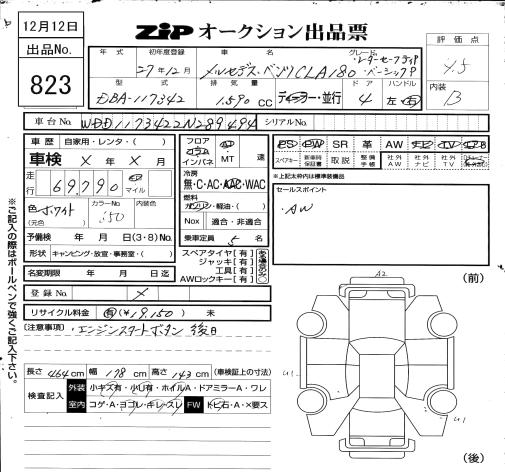 12月12日
ZIP オークション出品票
出品No.
823
年式 初年度登録 車名 グレード 評価点
27年12月 メルセデス・ベンツCLA180 レーダーセーフティP ・ベーシックP 4.5
型式 排気量 ドア ハンドル 内装
DBA-117342 1,590 CC ディーラー・並行 4 左・右 B
車台No. WDD1173422N289494 シリアルNo.
車歴 自家用・レンタ・( )
車検 × 年 × 月
走行 69,790 km マイル
色 ホワイト (元色) カラーNo. 650 内装色
予備検 年 月 日(3・8)No.
形状 キャンピング・放宣・事務室・( )
名変期限 年 月 日迄
フロア コラム インパネ AT MT 速
冷房 無・C・AC・AAC・WAC
燃料 ガソリン・軽油・( )
Nox 適合・非適合
乗車定員 5 名
スペアタイヤ【有】
ジャッキ【有】
工具【有】
AWロックキー【有】
PS PW SR 革 AW ナビ TV
スペアキー 新車時保証書 取説 整備手帳 社外AW 社外ナビ 社外TV
※上記太枠内は標準装備品
セールスポイント
・AW
登録No. ×
リサイクル料金 有(¥19,150) 未
(注意事項) ・エンジンスタートボタン 後日
長さ 464cm 幅 178cm 高さ 143cm (車検証上の寸法)
検査記入 外装 小キズ有・小U有・ホイルA・ドアミラーA・ワレ
室内 コゲ・A・ヨゴレ・キレ・スレ FW トビ石・A・×要ス
※ご記入の際はボールペンで強くご記入下さい。
(前)
A2
U1
U1
(後)